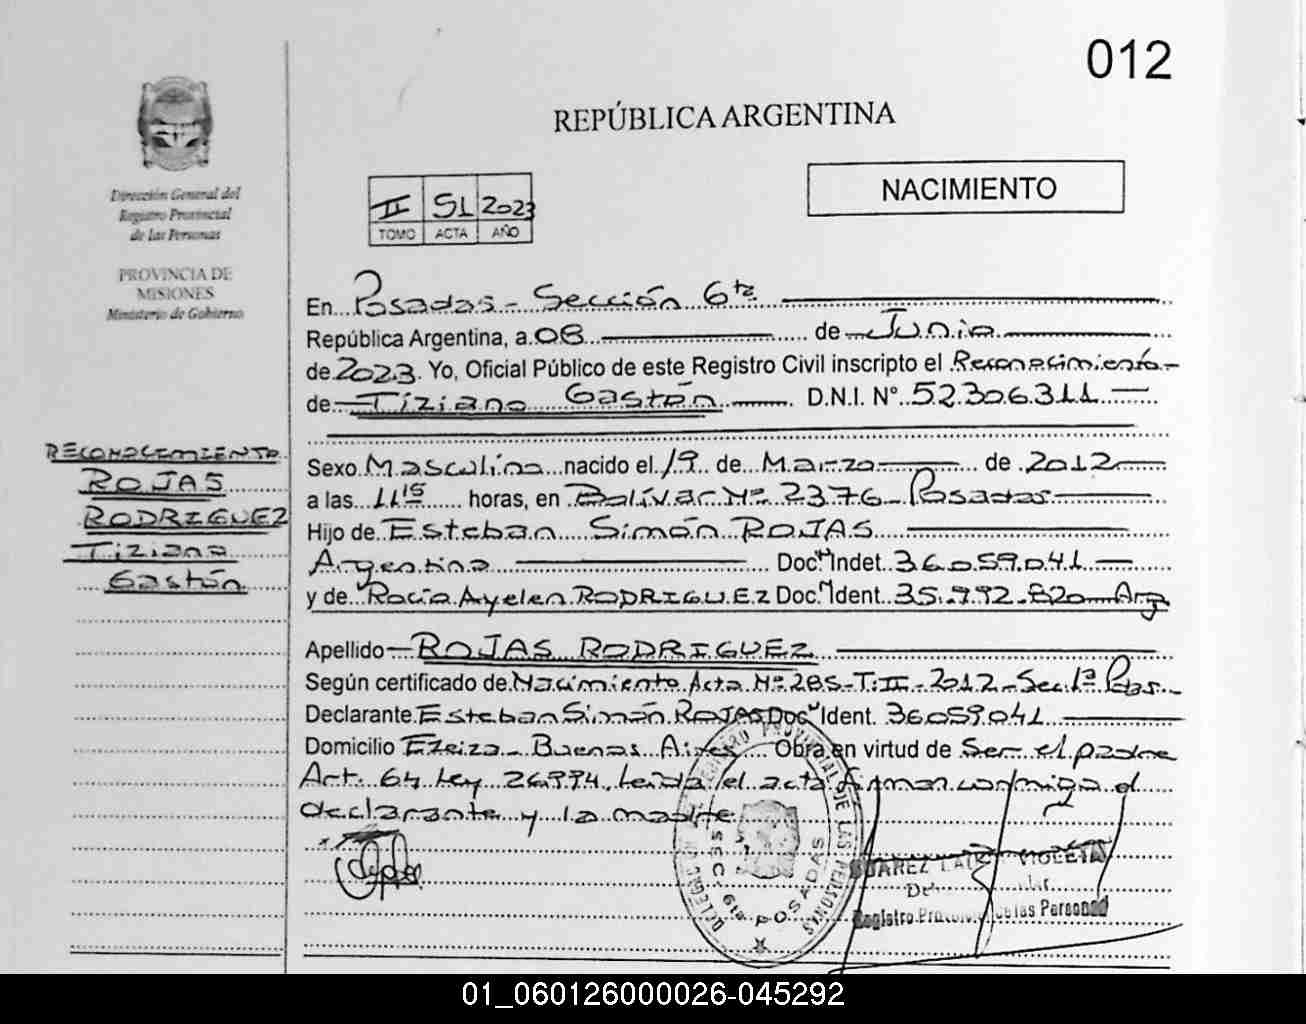 012
REPÚBLICA ARGENTINA
NACIMIENTO
Dirección General del
Registro Provincial
de las Personas
PROVINCIA DE
MISIONES
Ministerio de Gobierno
II 51 2023
TOMO ACTA AÑO
En Posadas - Sección 6ta
República Argentina, a 08 de Junio
de 2023. Yo, Oficial Público de este Registro Civil inscripto el Reconocimiento
de Tiziano Gastón D.N.I. N° 52.306.311
RECONOCIMIENTO
ROJAS
RODRIGUEZ
Tiziano
Gastón
Sexo Masculino nacido el 19 de Marzo de 2012
a las 11 15 horas, en Bolívar Nº 2376 - Posadas
Hijo de Esteban Simón ROJAS
Argentino Doc. Indet. 36.059.041
y de Rocío Ayelen RODRIGUEZ Doc. Ident. 35.992.820 - Arg
Apellido ROJAS RODRIGUEZ
Según certificado de Nacimiento Acta Nº 285 - T: II - 2012 - Sec. 1ª Pdas.
Declarante Esteban Simón ROJAS Doc. Ident. 36059.041
Domicilio Ezeiza - Buenos Aires Obra en virtud de Ser el padre
Art. 64 Ley 26994. Leída el acta firman conmigo el
declarante y la madre
REGISTRO PROVINCIAL DE LAS PERSONAS
DELEGACION
SECC. 6ta POSADAS
SUAREZ VIOLETA
Registro Provincial de las Personas
01_060126000026-045292